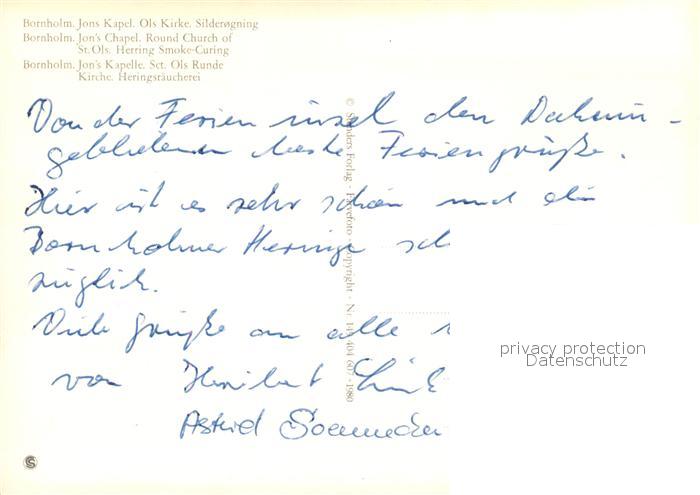 Bornholm. Jons Kapel. Ols Kirke. Silderøgning
Bornholm. Jon's Chapel. Round Church of
St. Ols. Herring Smoke-Curing
Bornholm. Jon's Kapelle. Sct. Ols Runde
Kirche. Heringsräucherei
Von der Ferieninsel den Daheim-
gebliebenen beste Feriengrüße.
Hier ist es sehr schön und die
Bornholmer Heringe sch
züglich.
Viele Grüße an alle
von Heribert
Astrid
privacy protection
Datenschutz